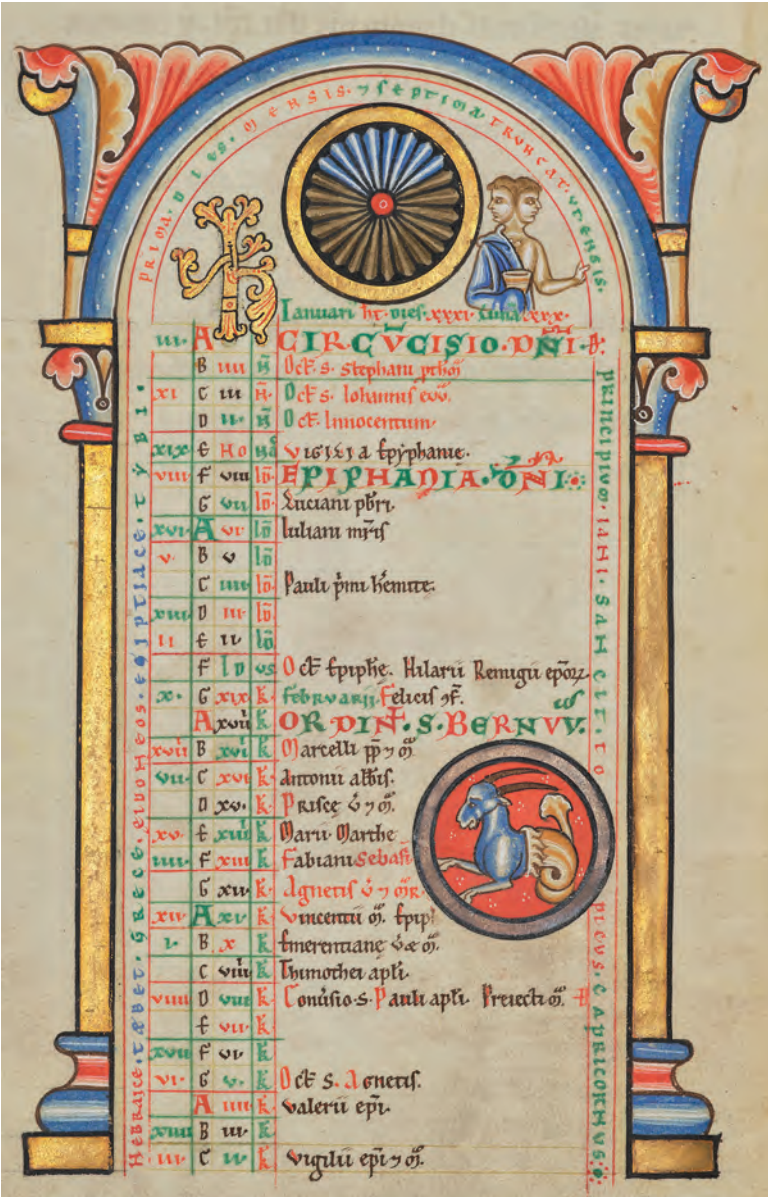 PRIMA · DIES · MENSIS · ⁊ SEPTIMA · TRVNCAT · VT ENSIS ·
Ianuari hт · dies · xxxi · Luna · xxx ·
iii · A CIRCVCISIO · DÑI ·
B iiii Ñ Oct · s · stephani
xi C iii Ñ · Oct s · Iohannis
D ii · Ñ Oct · Innocentum ·
xix E No VIGILIA Epyphanie ·
viii F viii id EPIPHANIA · DÑI
G vii id Luciani pbri ·
xvi A vi id Iuliani mris
v · B v id
C iiii id Pauli pmi hemite ·
xiii D iii · id
ii E ii · id
F Id us Oct Epiphe · Hilarii Remigii
x · G xix k · februarii · Felicis
A xviii k ORDINT · S · BERNVV ·
xviii B xvii k Marcelli pp ⁊ m
vii · C xvi k Antonii abbis ·
D xv · k · Prisce v ⁊ m ·
xv · E xiiii k Marii · Marthe
iiii · F xiii k Fabiani Sebasti
G xii · k · Agnetis v ⁊ m
xii · A xi · k · Vincentii m ·
i · B x k Emerentiane v m ·
C viiii k Thimothei apli ·
viiii D viii k Conusio · s · Pauli apli · Preiecti m ·
E vii · k
xvii F vi · k
vi · G v · k Oct s · Agnetis ·
A iiii k Valerii epi ·
xiiii B iii · k
iii · C ii · k Vigilii epi ⁊ m ·
HEBRAICE · TEBET · GRECE · EIDONEOS · EGIPTIACE · TYBI ·
PRINCIPIVM · IANI · SANCIT · TROPICVS · CAPRICORNVS ·